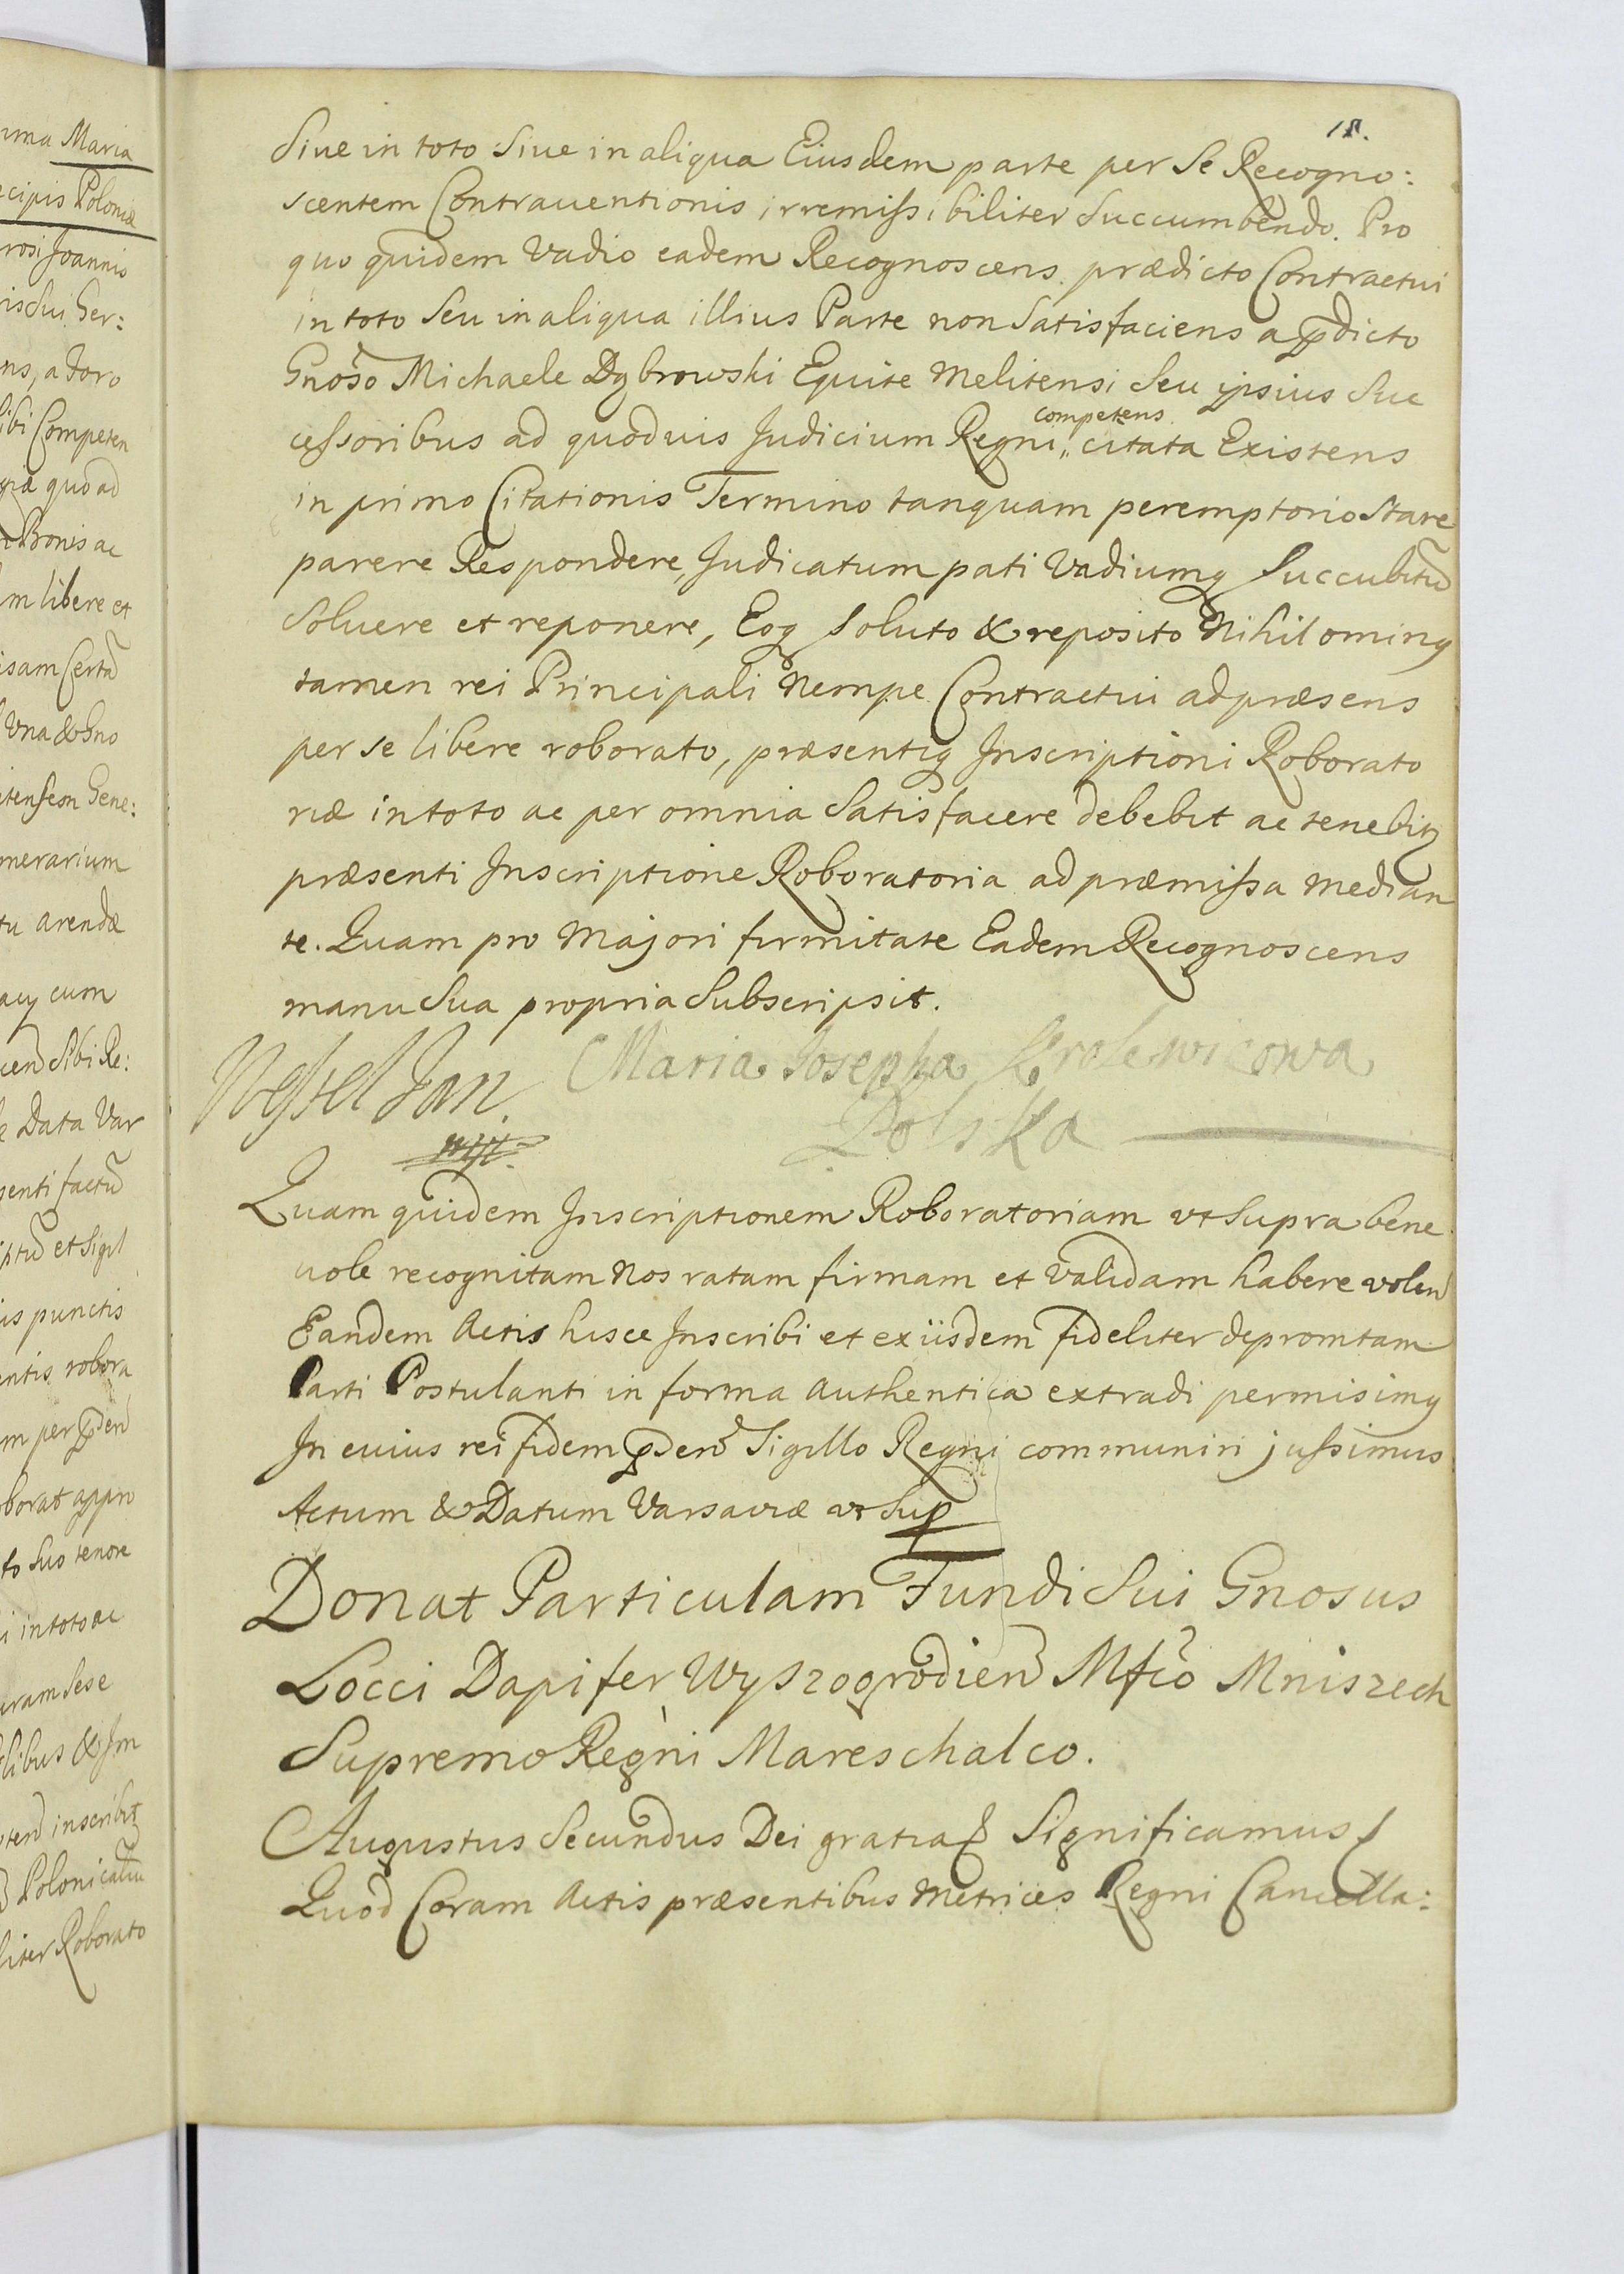 uma Maria
ecipis Poloniæ
rosi Joannis
is sui Ger:
ens, a foro
ibi Competen
quo ad
Bonis ac
m libere et
isam Certã
Vna & Gno
itensem Gene:
merarium
tu arendæ
cum
cend Sibi Re:
e Data Var
senti factũ
ptũ et Sigil
is punctis
entis robora
m per
oborat appro
to suo tenore
i in toto ac
uram Sese
libus & Im
inscribit
Polonicalium
liter Roborato
18.
Siue in toto Siue in aliqua Eiusdem parte per Se Recogno:
scentem Contrauentionis irremissibiliter Succumbendo. Pro
quo quidem Vadio eadem Recognoscens prædicto Contractui
in toto Seu in aliqua illius Parte non Satisfaciens a pdicto
Gnõso Michaele Dąbrowski Equite Melitensi Seu ipsius Suc
cessoribus ad quoduis Judicium Regni competens citata Existens
in primo Citationis Termino tanquam peremptorio Stare
parere Respondere, Judicatum pati Vadiumq Succubitũ
Soluere et reponere, Eoq Soluto & reposito Nihilominq
tamen rei Principali Nempe Contractui ad præsens
per se libere roborato, præsentiq Inscriptioni Roborato
riæ in toto ac per omnia Satisfacere debebit ac tenebit
præsenti Inscriptione Roboratoria ad præmissa Median
te. Quam pro Majori firmitate Eadem Recognoscens
manu Sua propria Subscripsit.
Maria Josepha Krolewicowa
Polska
Quam quidem Inscriptionem Roboratoriam vt Supra bene
uole recognitam Nos ratam firmam et Validam habere volen
Eandem Actis hisce Inscribi et ex iisdem fideliter depromtam
Parti Postulanti in forma authentica extradi permisimq
In cuius rei fidem pden Sigillo Regni communiri jussimus
Actum & Datum Varsaviæ vt Sup
Donat Particulam Fundi Sui Gnosus
Locci Dapifer Wyszogrodien Mfcõ Mniszech
Supremo Regni Mareschalco.
Augustus Secundus Dei gratia Significamus
Quod Coram Actis præsentibus Metrices Regni Cancella: